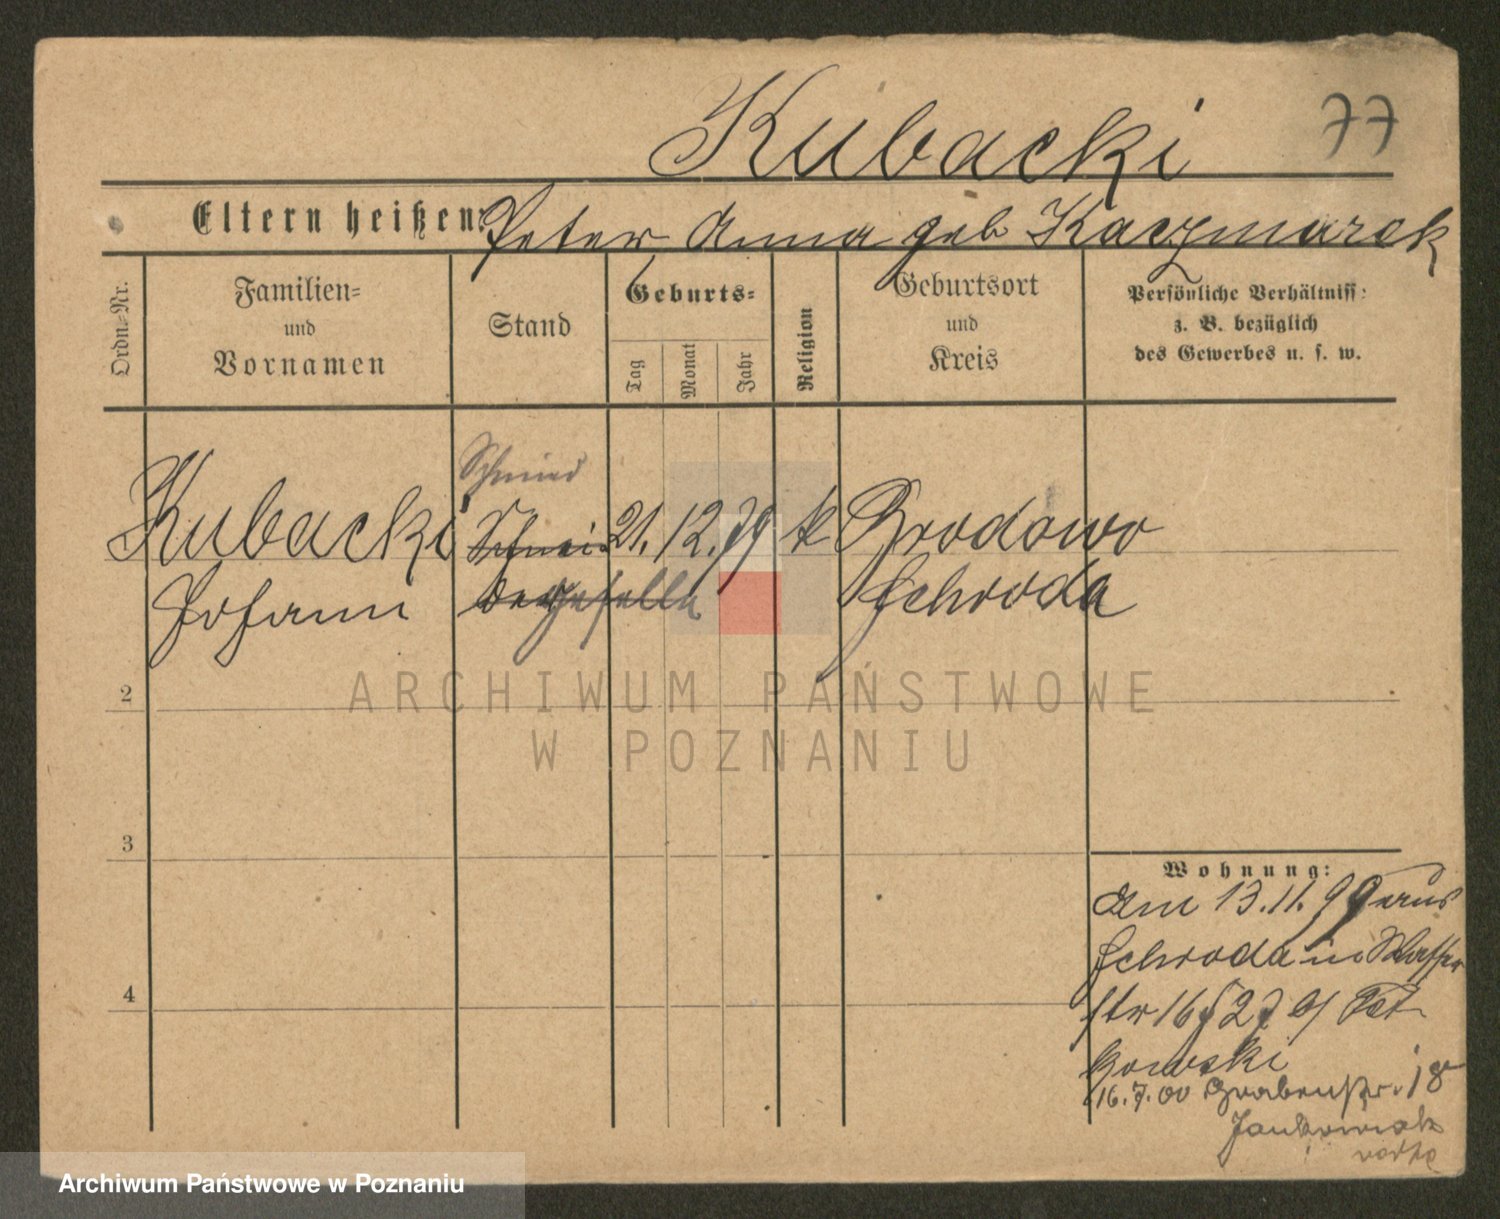 Kubacki
77
Eltern heißen: Peter Anna geb Kaczmarek
Ordn.-Nr.
Familien-
und
Vornamen
Stand
Geburts-
Tag
Monat
Jahr
Religion
Geburtsort
und
Kreis
Persönliche Verhältniss:
z. B. bezüglich
des Gewerbes u. s. w.
Schmied
Kubacki Schnei 21. 12. 79 k Brodowo
Johann dergeselle Schroda
ARCHIWUM PAŃSTWOWE
W POZNANIU
2
3
4
Wohnung:
Am 13.11.99 aus
Schroda in Wasser
str 16
kowski
16.7.00 Grabenstr. 18
Jankowiak
Archiwum Państwowe w Poznaniu